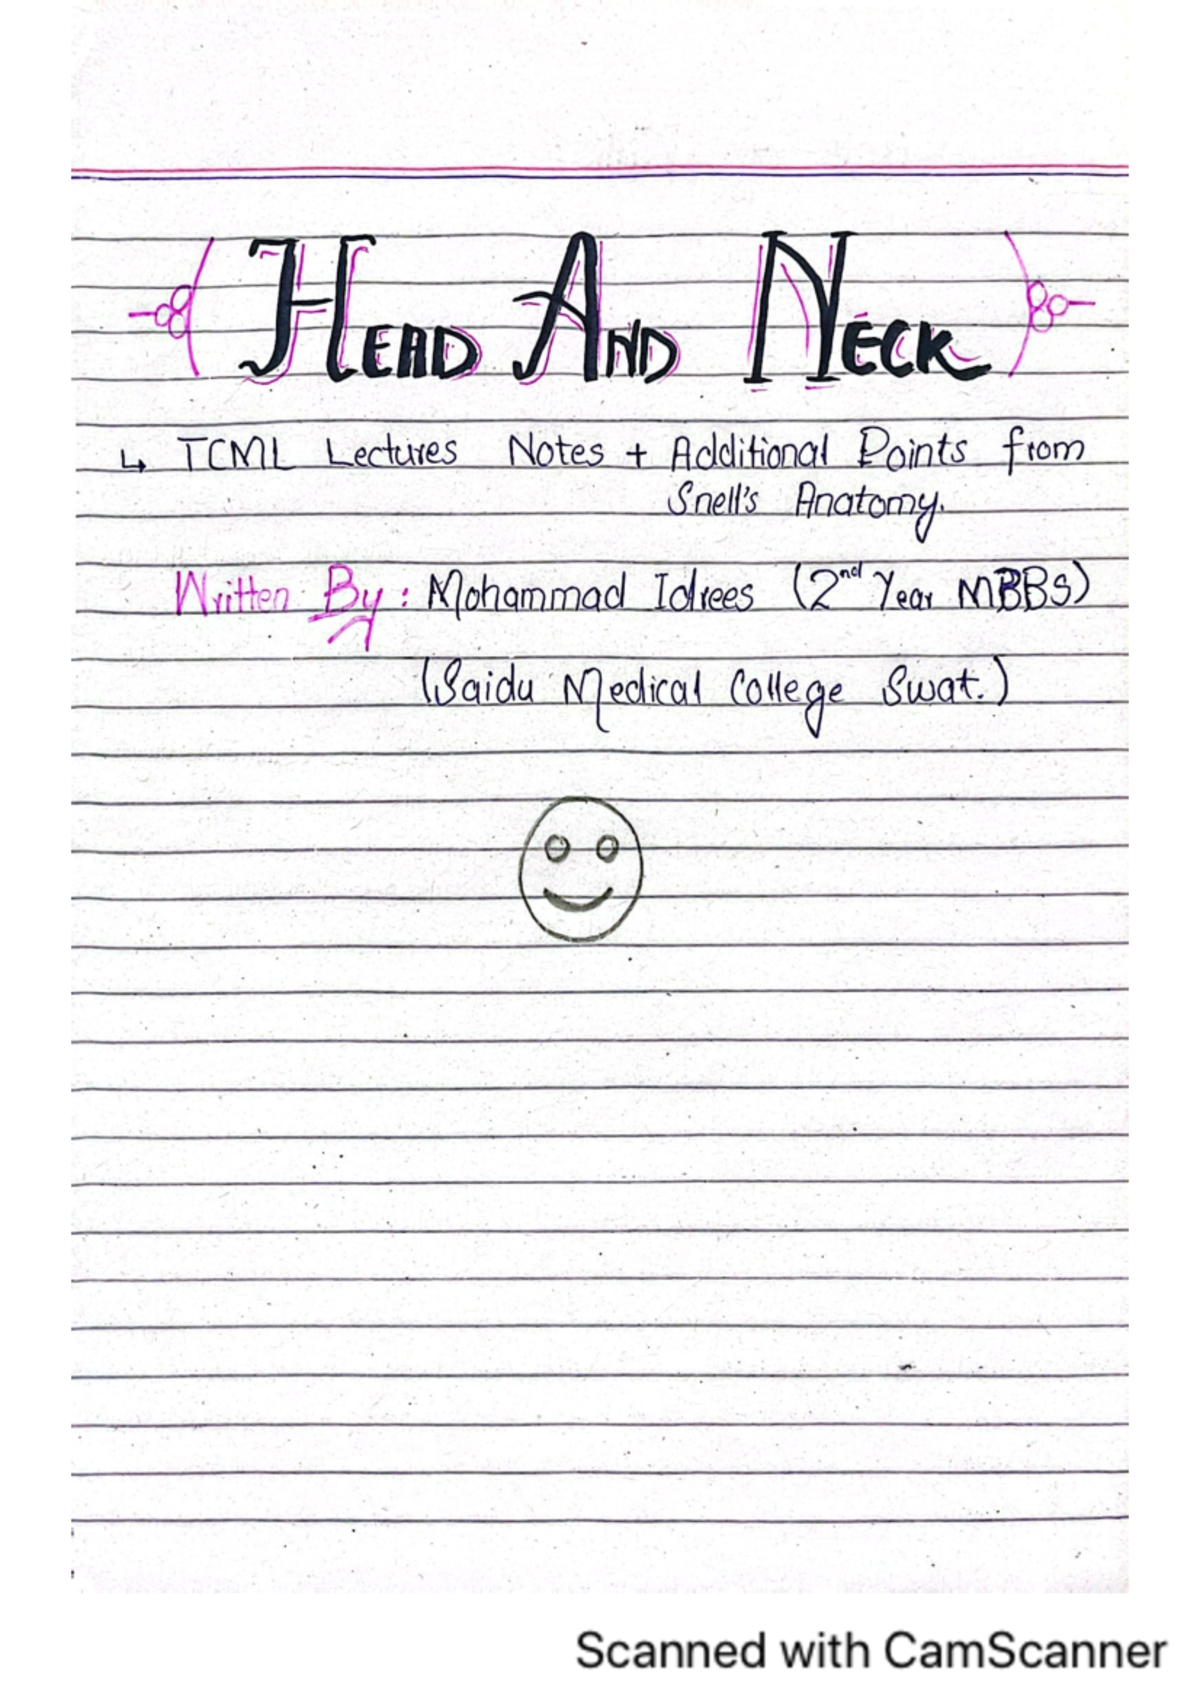 HEAD AND NECK
↳ TCML Lectures Notes + Additional Points from
Snell's Anatomy.
Written By : Mohammad Idrees (2nd Year MBBS)
(Saidu Medical College Swat.)
Scanned with CamScanner